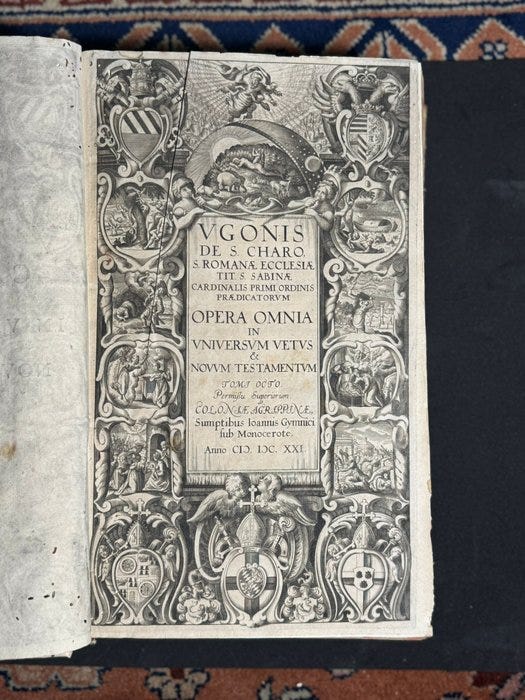 VGONIS
DE S. CHARO,
S. ROMANÆ ECCLESIÆ
TIT. S. SABINÆ
CARDINALIS PRIMI ORDINIS
PRÆDICATORVM
OPERA OMNIA
IN
VNIVERSVM VETVS
&
NOVUM TESTAMENTVM
TOMI OCTO.
Permissu Superiorum.
COLONIÆ AGRIPPINÆ,
Sumptibus Ioannis Gymnici
sub Monocerote.
Anno CIↃ. IↃC. XXI.